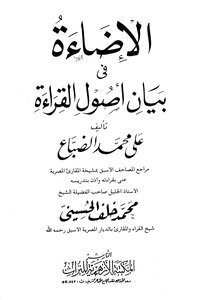 الإضاءة
فى
بيان أصول القراءة
تأليف
على محمد الضباع
مراجع المصاحف الأسبق بمشيخة المقارئ المصرية
عنى بقراءته وأذن بتدريسه
الأستاذ الجليل صاحب الفضيلة الشيخ
محمد خلف الحسينى
شيخ القراء والمقارئ بالديار المصرية الأسبق رحمه الله
الناشر
المكتبة الأزهرية للتراث